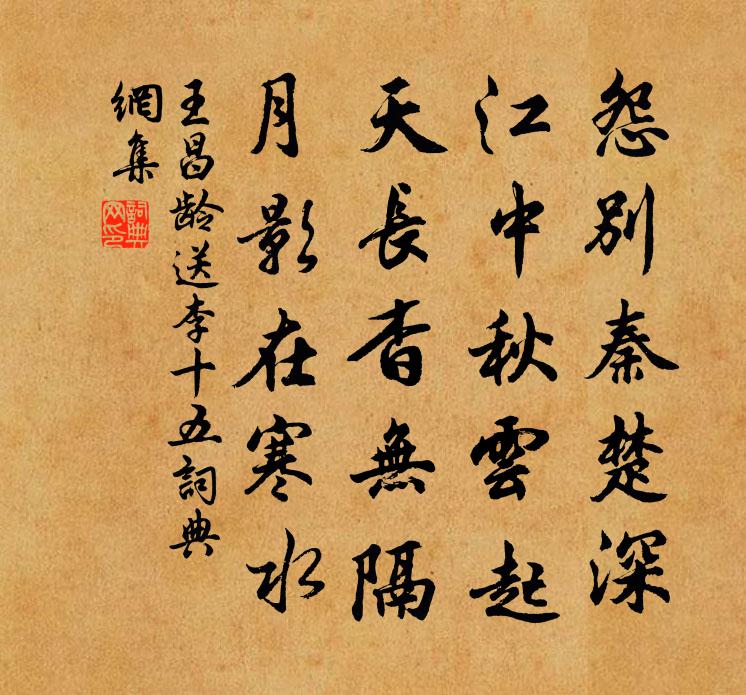 怨別秦楚深
江中秋雲起
天長杳無隔
月影在寒水
王昌龄送李十五詞典
網集
詞典网印